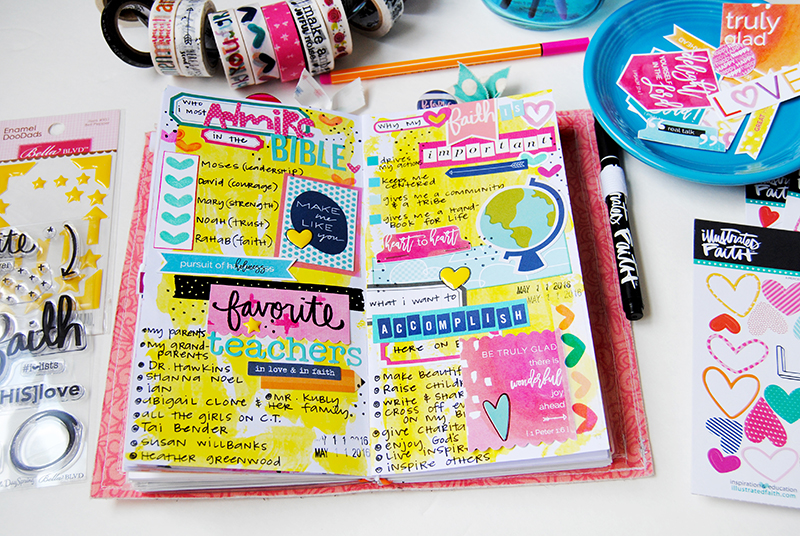 WHO
I MOST
ADMIRE
IN THE
BIBLE
Moses (leadership)
David (courage)
Mary (strength)
Noah (trust)
Rahab (faith)
MAKE
me
LIKE
YOU
pursuit of
favorite
teachers
in love & in faith
my parents
my grand-
parents
Dr. Hawkins
Shanna Noel
Ian
Abigail Clone &
her family
Mr. Kubly
all the girls on C.T.
Tai Bender
Susan Willbanks
Heather Greenwood
MAY 11 2016
WHY MY
faith
IS
important
drives
my
keep me
centered
gives me a community
& a tribe
gives me a hand-
book for life
heart to heart
MAY 11 2016
what i want to
ACCOMPLISH
HERE ON
Make
Raise
write &
cross off
on my
give
enjoy God's
Live
inspire others
BE TRULY GLAD
there is
wonderful
joy
ahead
1 Peter 1:6
truly
glad
delight
YOURSELF
IN THE
Lord
LOVE
real talk
GREAT
Enamel
DooDads
Bella BLVD
faith
#lists
HIS]love
DaySpring
Bella BLVD
illustrated
Faith
illustrated
FAITH
inspiration education
illustratedfaith.com